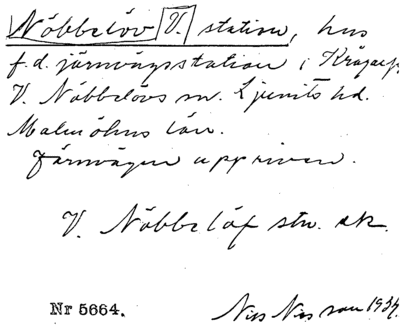 Nöbbelöv V. station, hus
f.d. järnvägsstation i
V. Nöbbelövs sn. Ljunits hd.
Malmöhus län.
Järnvägen uppriven.
V. Nöbbelöf stn. ek.
Nr 5664. Nils Nilsson 1934.